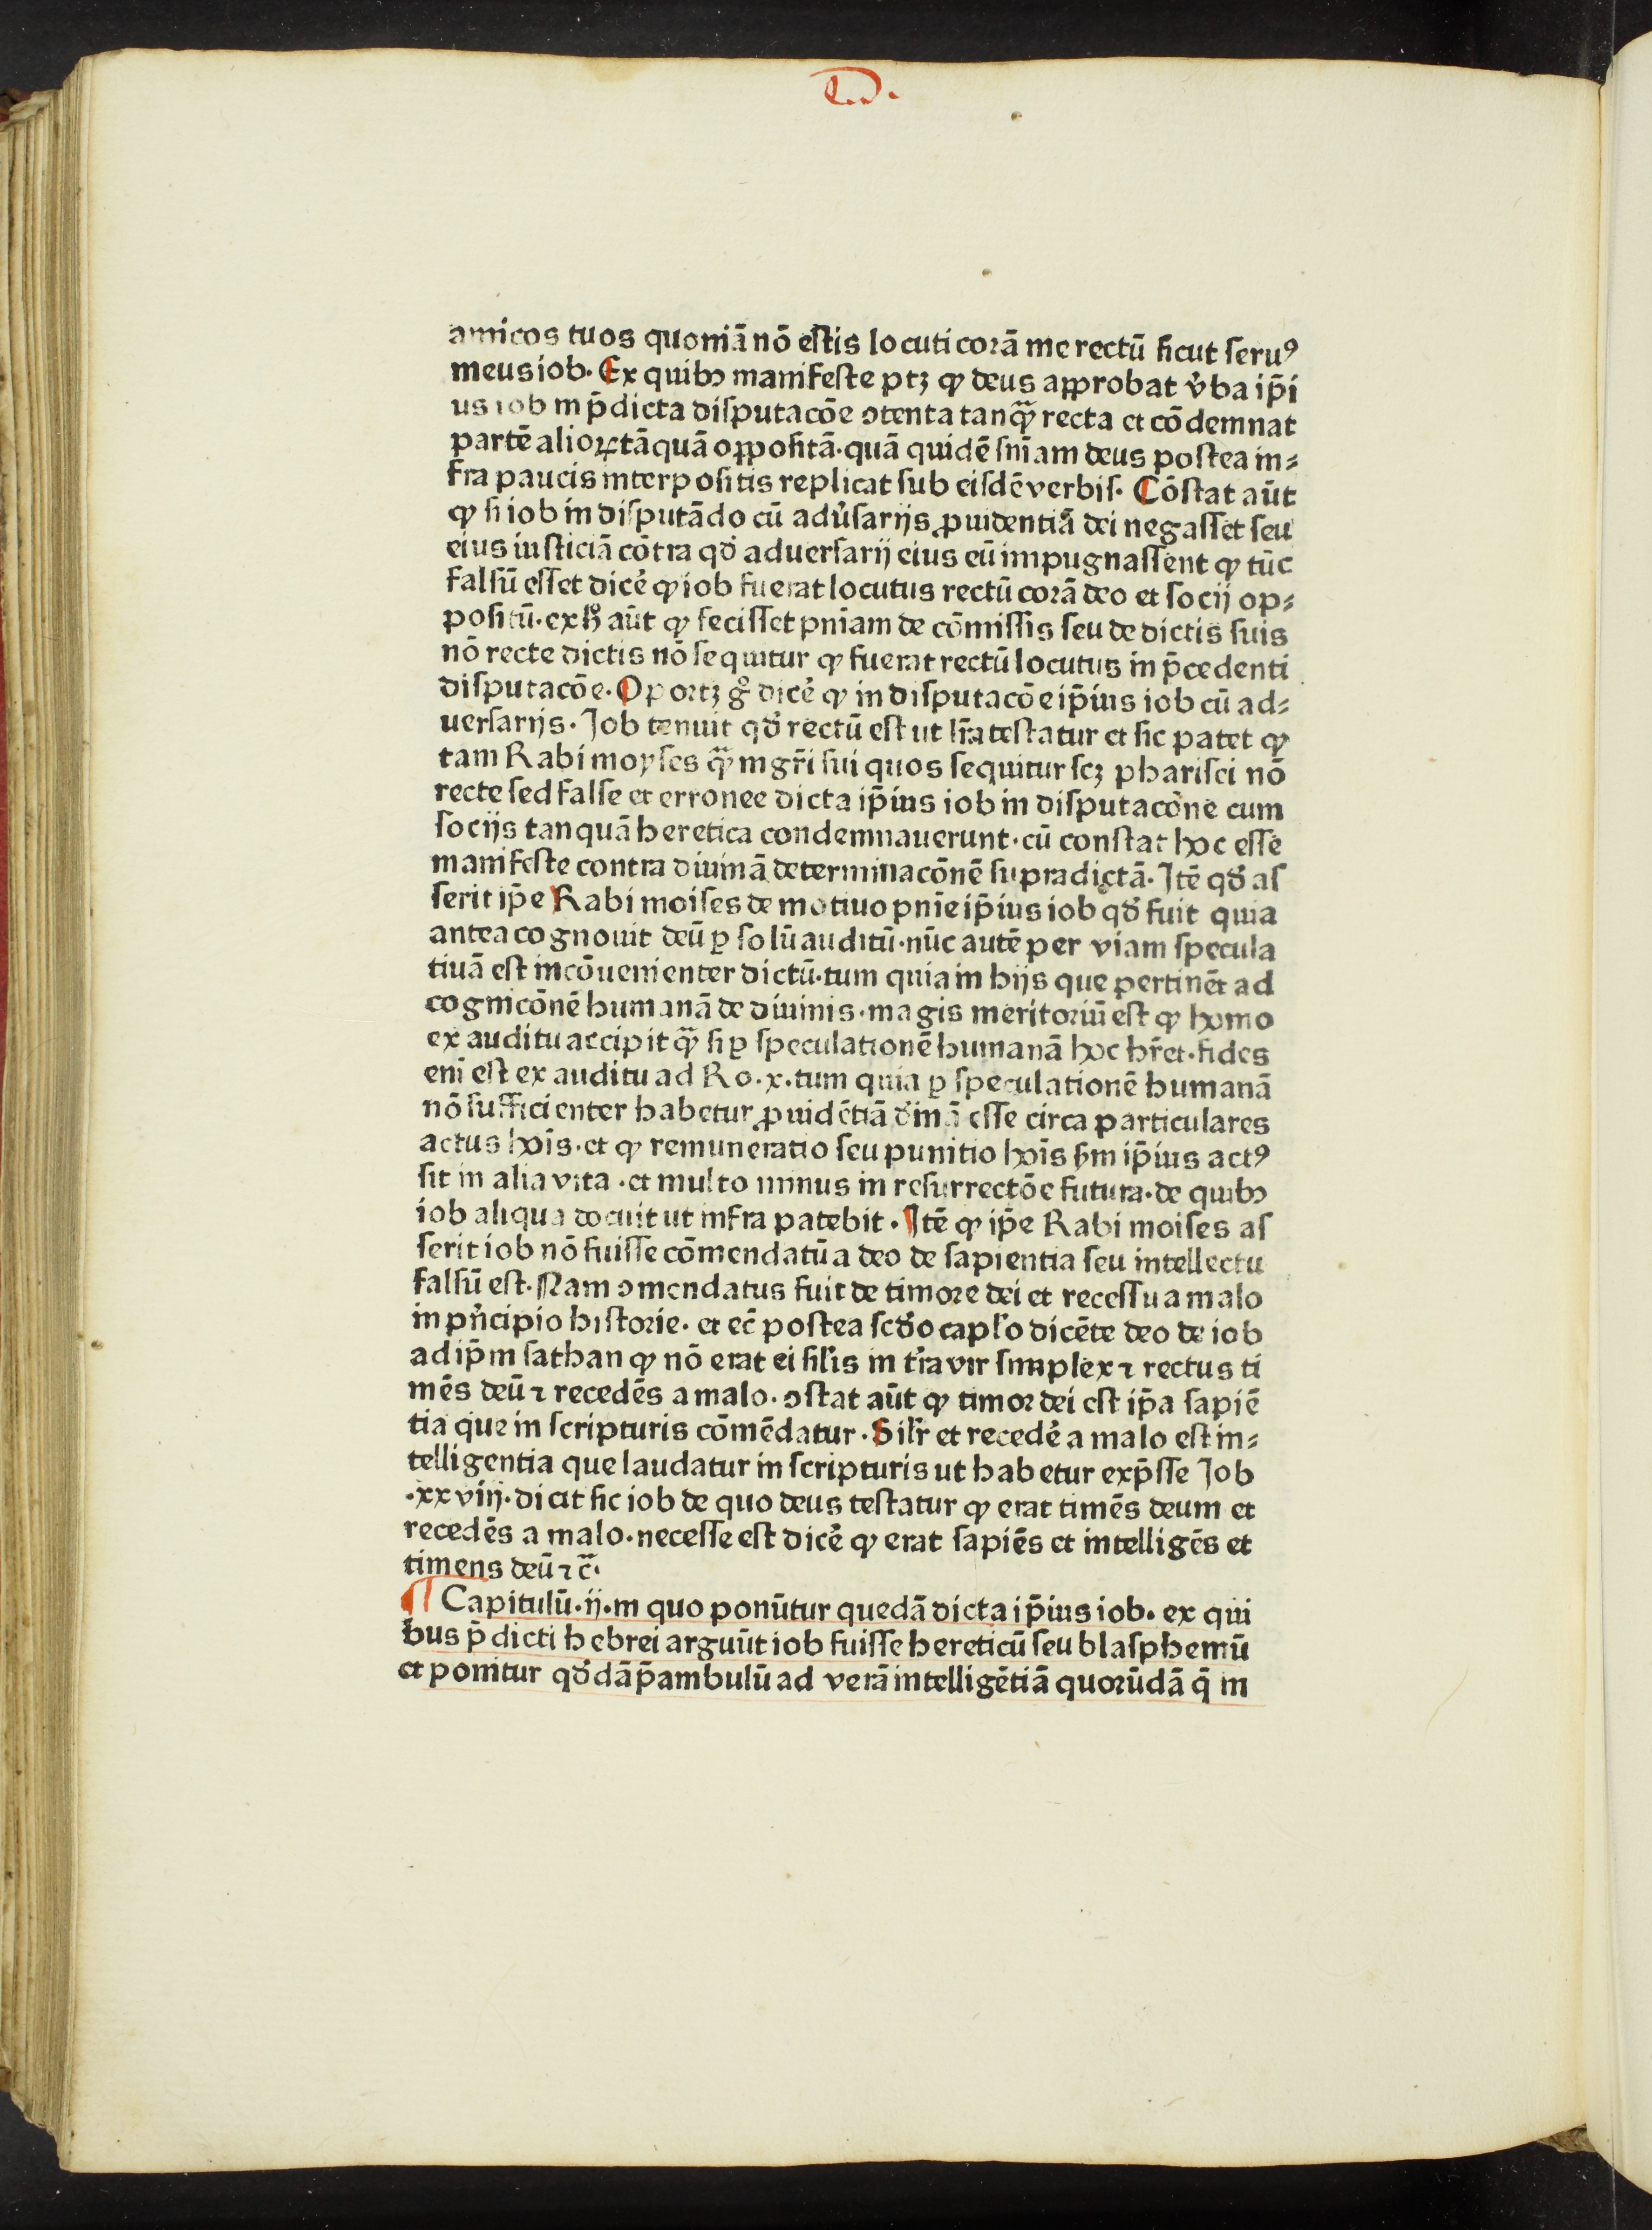 D.
amicos tuos quoniā nō eſtis locuti corā me rectū ſicut ſeruꝰ
meus iob. Ex quibꝫ manifeſte ptꝫ ꝙ deus approbat v̓ba ip̄i
us iob in p̄dicta diſputacōe ꝯtenta tanqᷓ recta et cōdemnat
partē alioꝝ tāquā oppoſitā. quā quidē ſn̄iam deus poſtea in⸗
fra paucis interpoſitis replicat ſub eiſdē verbiſ. Cōſtat aūt
ꝙ ſi iob in diſputādo cū adu̓ſarijs ꝓuidentiā dei negaſſet ſeu
eius iuſticiā cōtra qd̓ aduerſarij eius eū impugnaſſent ꝙ tūc
falſū eſſet dicē ꝙ iob fuerat locutus rectū corā deo et ſocij op⸗
poſitū. ex h̓ aūt ꝙ feciſſet pn̄iam de cōmiſſis ſeu de dictis ſuis
nō recte dictis nō ſequitur ꝙ fuerat rectū locutus in p̄cedenti
diſputacōe. Oportꝫ gͦ dicē ꝙ in diſputacōe ip̄ius iob cū ad⸗
uerſarijs. Job tenuit qd̓ rectū eſt ut lr̄a teſtatur et ſic patet ꝙ
tam Rabi moyſes qᷓ mgr̄i ſui quos ſequitur ſcꝫ phariſei nō
recte ſed falſe et erronee dicta ip̄ius iob in diſputacōne cum
ſocijs tanquā heretica condemnauerunt. cū conſtat hoc eſſe
manifeſte contra diuinā determinacōnē ſupradictā. Jtē qd̓ aſ
ſerit ip̄e Rabi moiſes de motiuo pnīe ip̄ius iob qd̓ fuit quia
antea cognouit deū ꝑ ſolū auditū. nūc autē per viam ſpecula
tiuā eſt incōuenienter dictū. tum quia in hijs que pertinēt ad
cognicōnē humanā de diuinis. magis meritoriū eſt ꝙ homo
ex auditu accipit qᷓ ſi ꝑ ſpeculationē humanā hoc hr̄et. fides
eni eſt ex auditu ad Ro. x. tum quia ꝑ ſpeculationē humanā
nō ſufficienter habetur ꝓuidētiā d̓inā eſſe circa particulares
actus hoīs. et ꝙ remuneratio ſeu punitio hoīs ẜm ip̄ius actꝰ
ſit in alia vita. et multo minus in reſurrectōe futura. de quibꝫ
iob aliqua docuit ut infra patebit. Jtē ꝙ ip̄e Rabi moiſes aſ
ſerit iob nō fuiſſe cōmendatū a deo de ſapientia ſeu intellectu
falſū eſt. Nam ꝯmendatus fuit de timore dei et receſſu a malo
in pn̓cipio hiſtorie. et ec̄ poſtea ſcd̓o capl̓o dicēte deo de iob
ad ip̄m ſathan ꝙ nō erat ei ſil̓is in tr̓a vir ſimplex ⁊ rectus ti
mēs deū ⁊ recedēs a malo. ꝯſtat aūt ꝙ timor dei eſt ip̄a ſapiē
tia que in ſcripturis cōmēdatur. Sil̓r et recedē a malo eſt in⸗
telligentia que laudatur in ſcripturis ut habetur exp̄ſſe Job
.xxviij. dicit ſic iob de quo deus teſtatur ꝙ erat timēs deum et
recedēs a malo. neceſſe eſt dicē ꝙ erat ſapiēs et intelligēs et
timens deū ⁊ cᷓ.
¶ Capitulū. ij. in quo ponūtur quedā dicta ip̄ius iob. ex qui
bus p̄dicti hebrei arguūt iob fuiſſe hereticū ſeu blaſphemū
et ponitur qd̓dā p̄ambulū ad verā intelligētiā quorūdā q̄ in